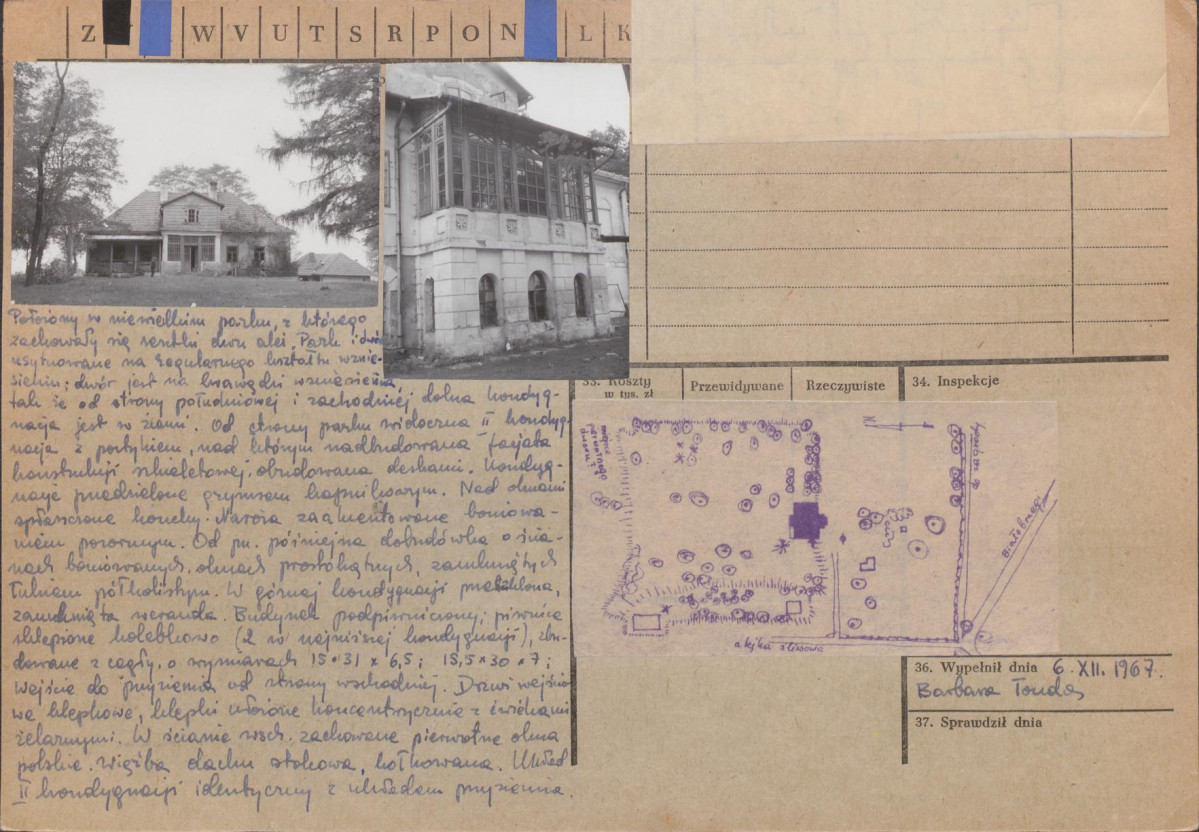 Z W V U T S R P O N L K
Położony w niewielkim parku, z którego
zachowały się resztki dwu alei. Park i dwór
usytuowane na regularnego kształtu wznie-
sieniu; dwór jest na krawędzi wzniesienia,
tak że od strony południowej i zachodniej dolna kondyg-
nacja jest w ziemi. Od strony parku widoczna II kondyg-
nacja z portykiem, nad którym nadbudowana facjata
konstrukcji szkieletowej, obudowana deskami. Kondyg-
nacje przedzielone gzymsem kapnikowym. Nad oknami
spłaszczone konchy. Naroża zaakcentowane boniowa-
niem pozornym. Od pn. późniejsza dobudówka o ścia-
nach boniowanych, oknach prostokątnych, zamkniętych
łukiem półkolistym. W górnej kondygnacji przeszklona,
zamknięta weranda. Budynek podpiwniczony; piwnice
sklepione kolebkowo (2 w najniższej kondygnacji), zbu-
dowane z cegły, o wymiarach 15 × 31 × 6,5; 15,5 × 30 × 7;
Wejście do przyziemia od strony wschodniej. Drzwi wejścio-
we klepkowe, klepki ułożone koncentrycznie z ćwiekami
żelaznymi. W ścianie wsch. zachowane pierwotne okna
polskie. Więźba dachu stolcowa, kołkowana. Układ
II kondygnacji identyczny z układem przyziemia.
33. Koszty
w tys. zł
Przewidywane
Rzeczywiste
34. Inspekcje
miejsce
pierwotnego
dworu
N
Białobrzegi
alejka
36. Wypełnił dnia 6. XII. 1967.
Barbara Tondos
37. Sprawdził dnia